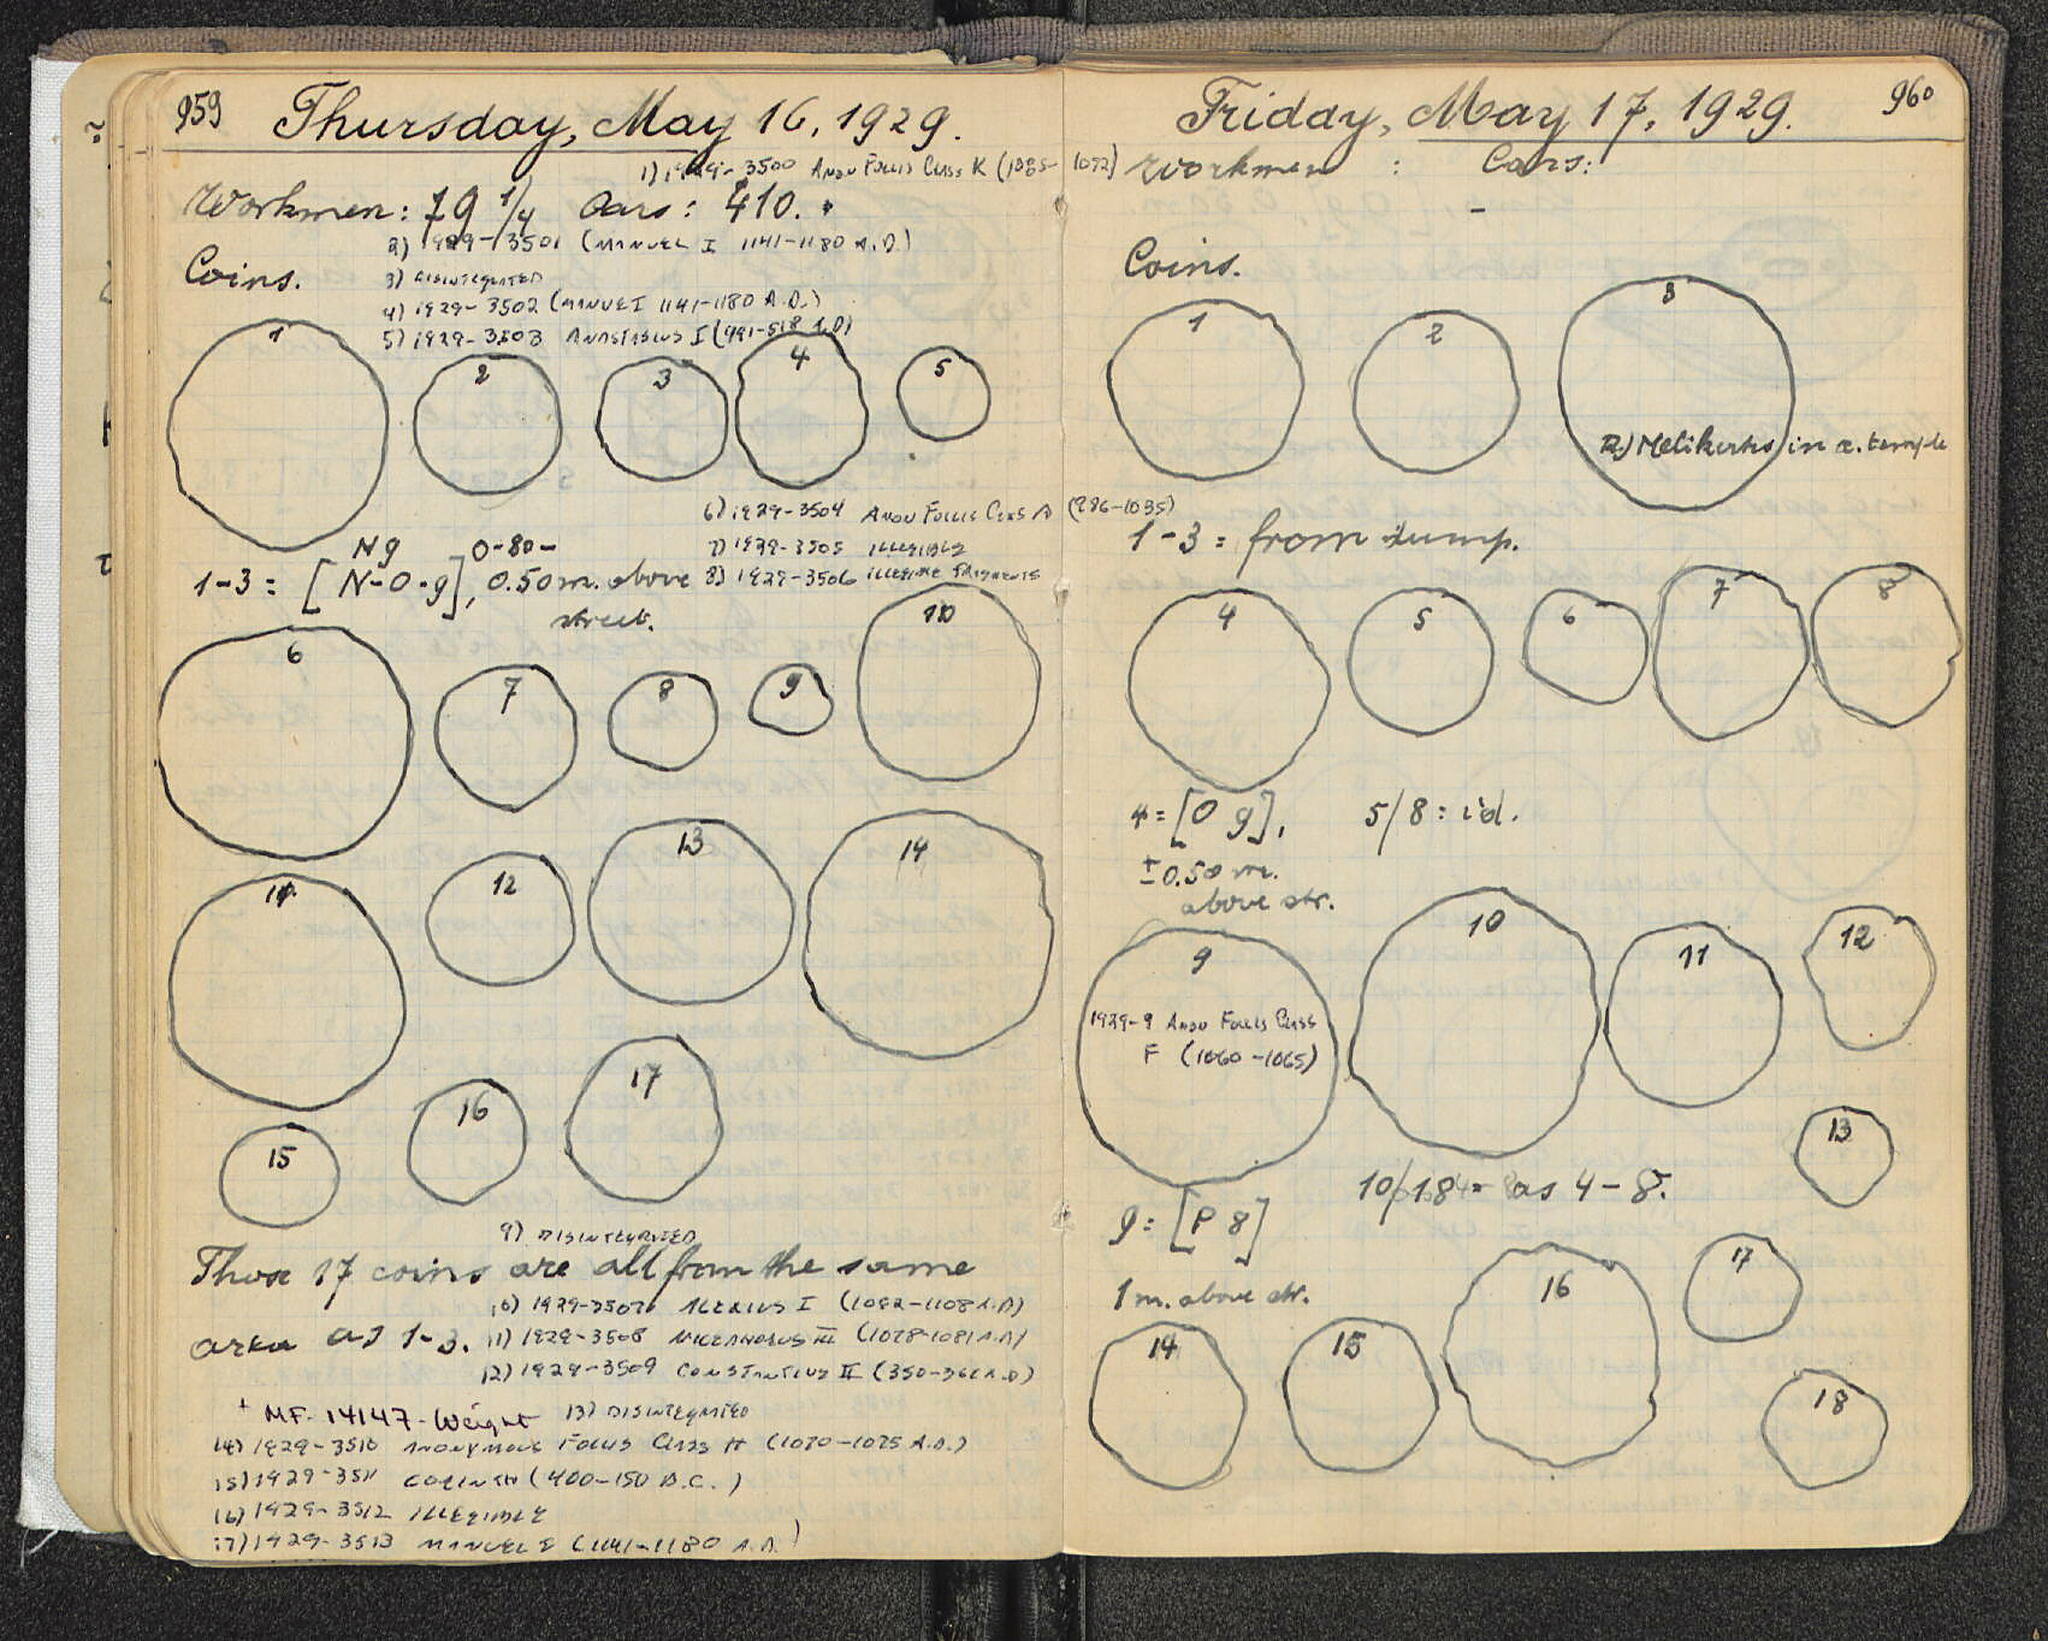 959
Thursday, May 16, 1929.
1) 1929-3500 Anon Follis Class K (1085-1092)
Workmen: 79 1/4 Cars: 410.
2) 1929-3501 (MANUEL I 1141-1180 A.D.)
Coins.
3) DISINTEGRATED
4) 1929-3502 (MANUE I 1141-1180 A.D.)
5) 1929-3503 ANASTASIUS I (491-518 A.D)
1
2
3
4
5
6) 1929-3504 Anon Follis Class A (986-1035)
Ng 0-80-
7) 1929-3505 ILLEGIBLE
1-3 = [N-O-g], 0.50 m. above
8) 1929-3506 ILLEGIBLE FRAGMENTS
street.
6
7
8
9
10
11
12
13
14
15
16
17
9) DISINTEGRATED
Those 17 coins are all from the same
10) 1929-3507 ALEXIUS I (1082-1108 A.D)
area as 1-3.
11) 1929-3508 NICEPHORUS III (1078-1081 A.D)
12) 1929-3509 CONSTANTIUS II (350-361 A.D)
+ MF. 14147 - Weight
13) DISINTEGRATED
14) 1929-3510 ANONYMOUS Follis Class H (1070-1075 A.D.)
15) 1929-3511 CORINTH (400-150 B.C.)
16) 1929-3512 ILLEGIBLE
17) 1929-3513 MANUEL I (1141-1180 A.D.)
Friday, May 17, 1929.
960
Workmen : Cars:
-
Coins.
1
2
3
R) Melikertes in a. temple
1-3 = from dump.
4
5
6
7
8
4 = [O g],
5/8 : id.
± 0.50 m.
above str.
9
1929-9 Anon Follis Class
F (1060-1065)
10
11
12
13
10/18 = as 4-8.
9 = [P 8]
1 m. above str.
14
15
16
17
18